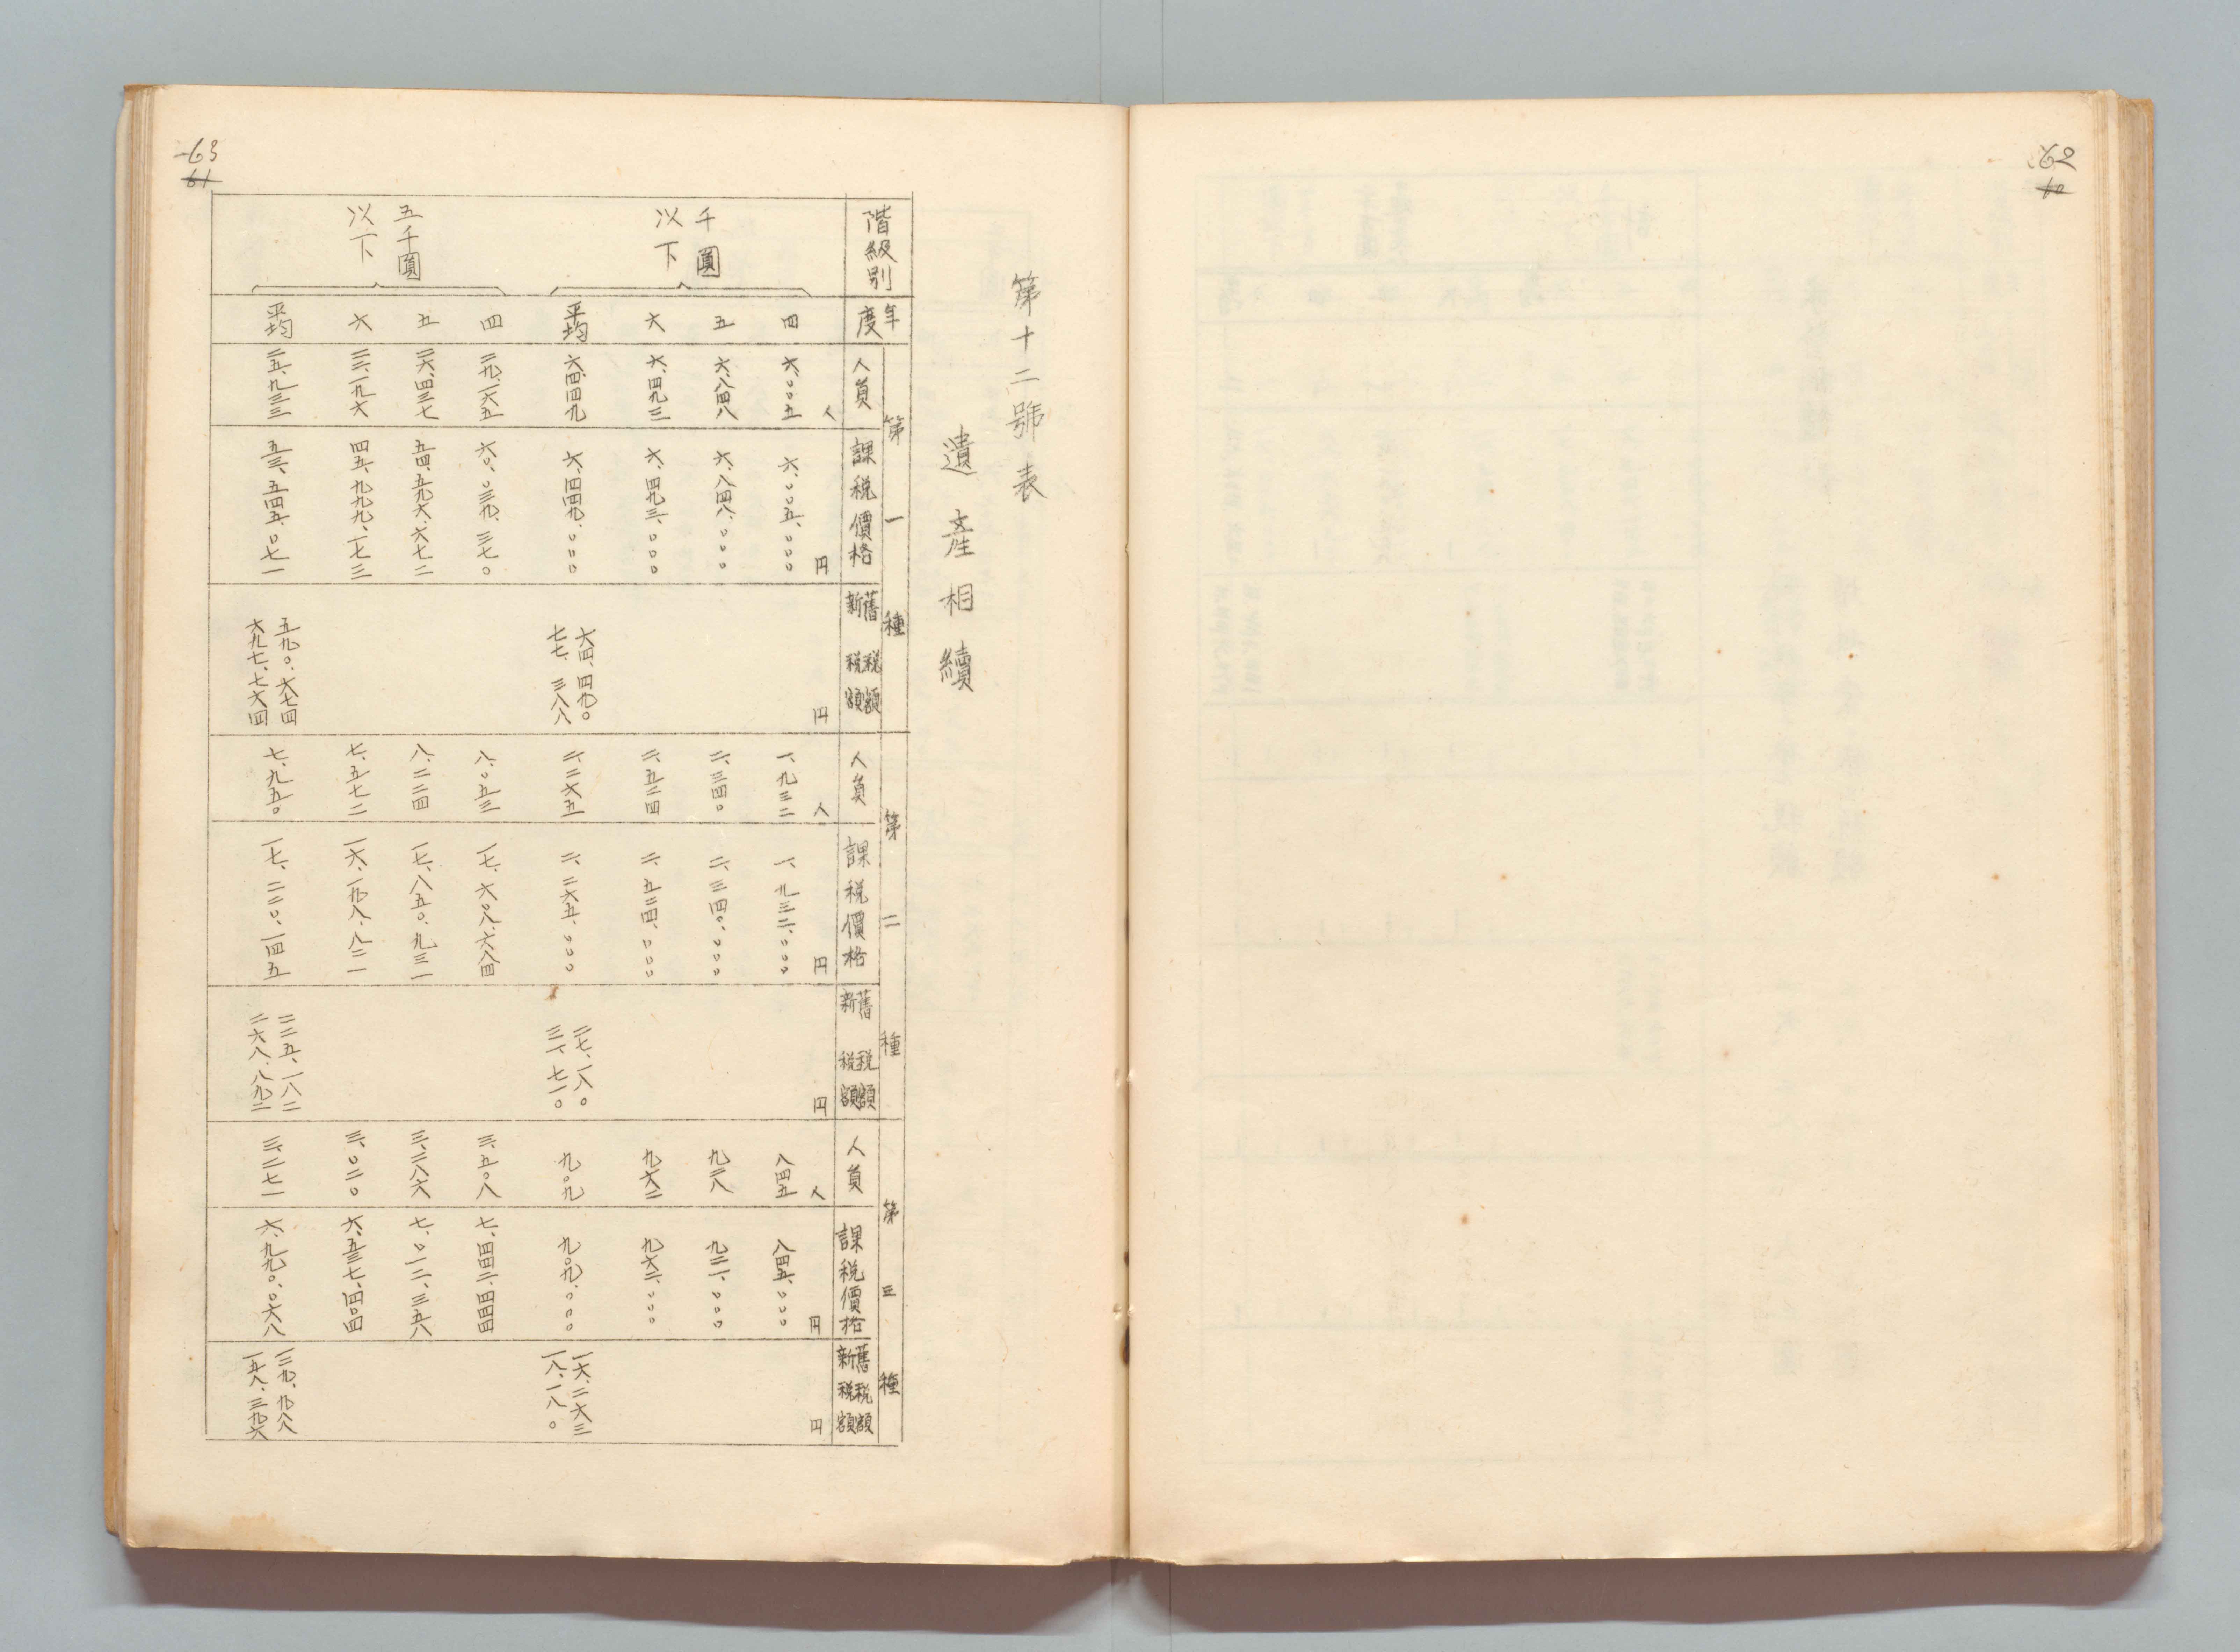 62
60
第十二號表
遺産相續
63
61
階級別 年度 第一種 人員 課税價格 舊税額 新税額 第二種 人員 課税價格 舊税額 新税額 第三種 人員 課税價格 舊税額 新税額
人 円 円 人 円 円 人 円 円
千圓以下
四 六、〇〇五 六、〇〇五、〇〇〇 一、九三二 一、九三二、〇〇〇 八四五 八四五、〇〇〇
五 六、八四八 六、八四八、〇〇〇 二、三四〇 二、三四〇、〇〇〇 九二八 九二一、〇〇〇
六 六、四九三 六、四九三、〇〇〇 二、五二四 二、五二四、〇〇〇 九六二 九六二、〇〇〇
平均 六、四四九 六、四四九、〇〇〇 六四、四九〇 七七、三八八 二、二六五 二、二六五、〇〇〇 二七、一八〇 三一、七一〇 九〇九 九〇九、〇〇〇 一六、二六三 一八、一八〇
五千圓以下
四 二九、一六五 六〇、〇三九、三七〇 八、〇五三 一七、六〇八、六八四 三、五〇八 七、四四二、四四四
五 二六、四三七 五四、五九六、六七二 八、二二四 一七、八五〇、九三一 三、二八六 七、〇一二、三五八
六 二二、一九六 四五、九九九、一七三 七、五七二 一六、一九八、八二一 三、〇二〇 六、五三七、四〇四
平均 二五、九三三 五三、五四五、〇七一 五九〇、六七四 六九七、七六四 七、九五〇 一七、二二〇、一四五 二二五、一八二 二六八、八九二 三、二七一 六、九九〇、〇六八 一三九、九八八 一五八、三九六